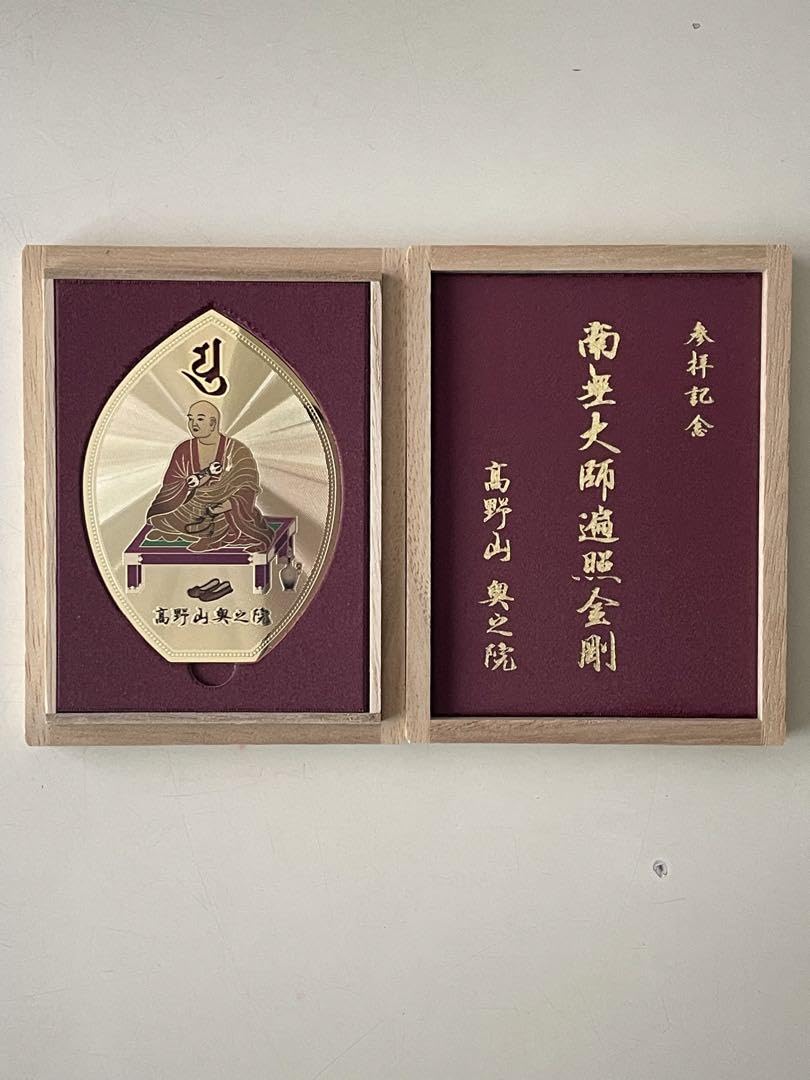 𑖧𑖲
高野山奥之院
参拝記念
南無大師遍照金剛
高野山 奥之院